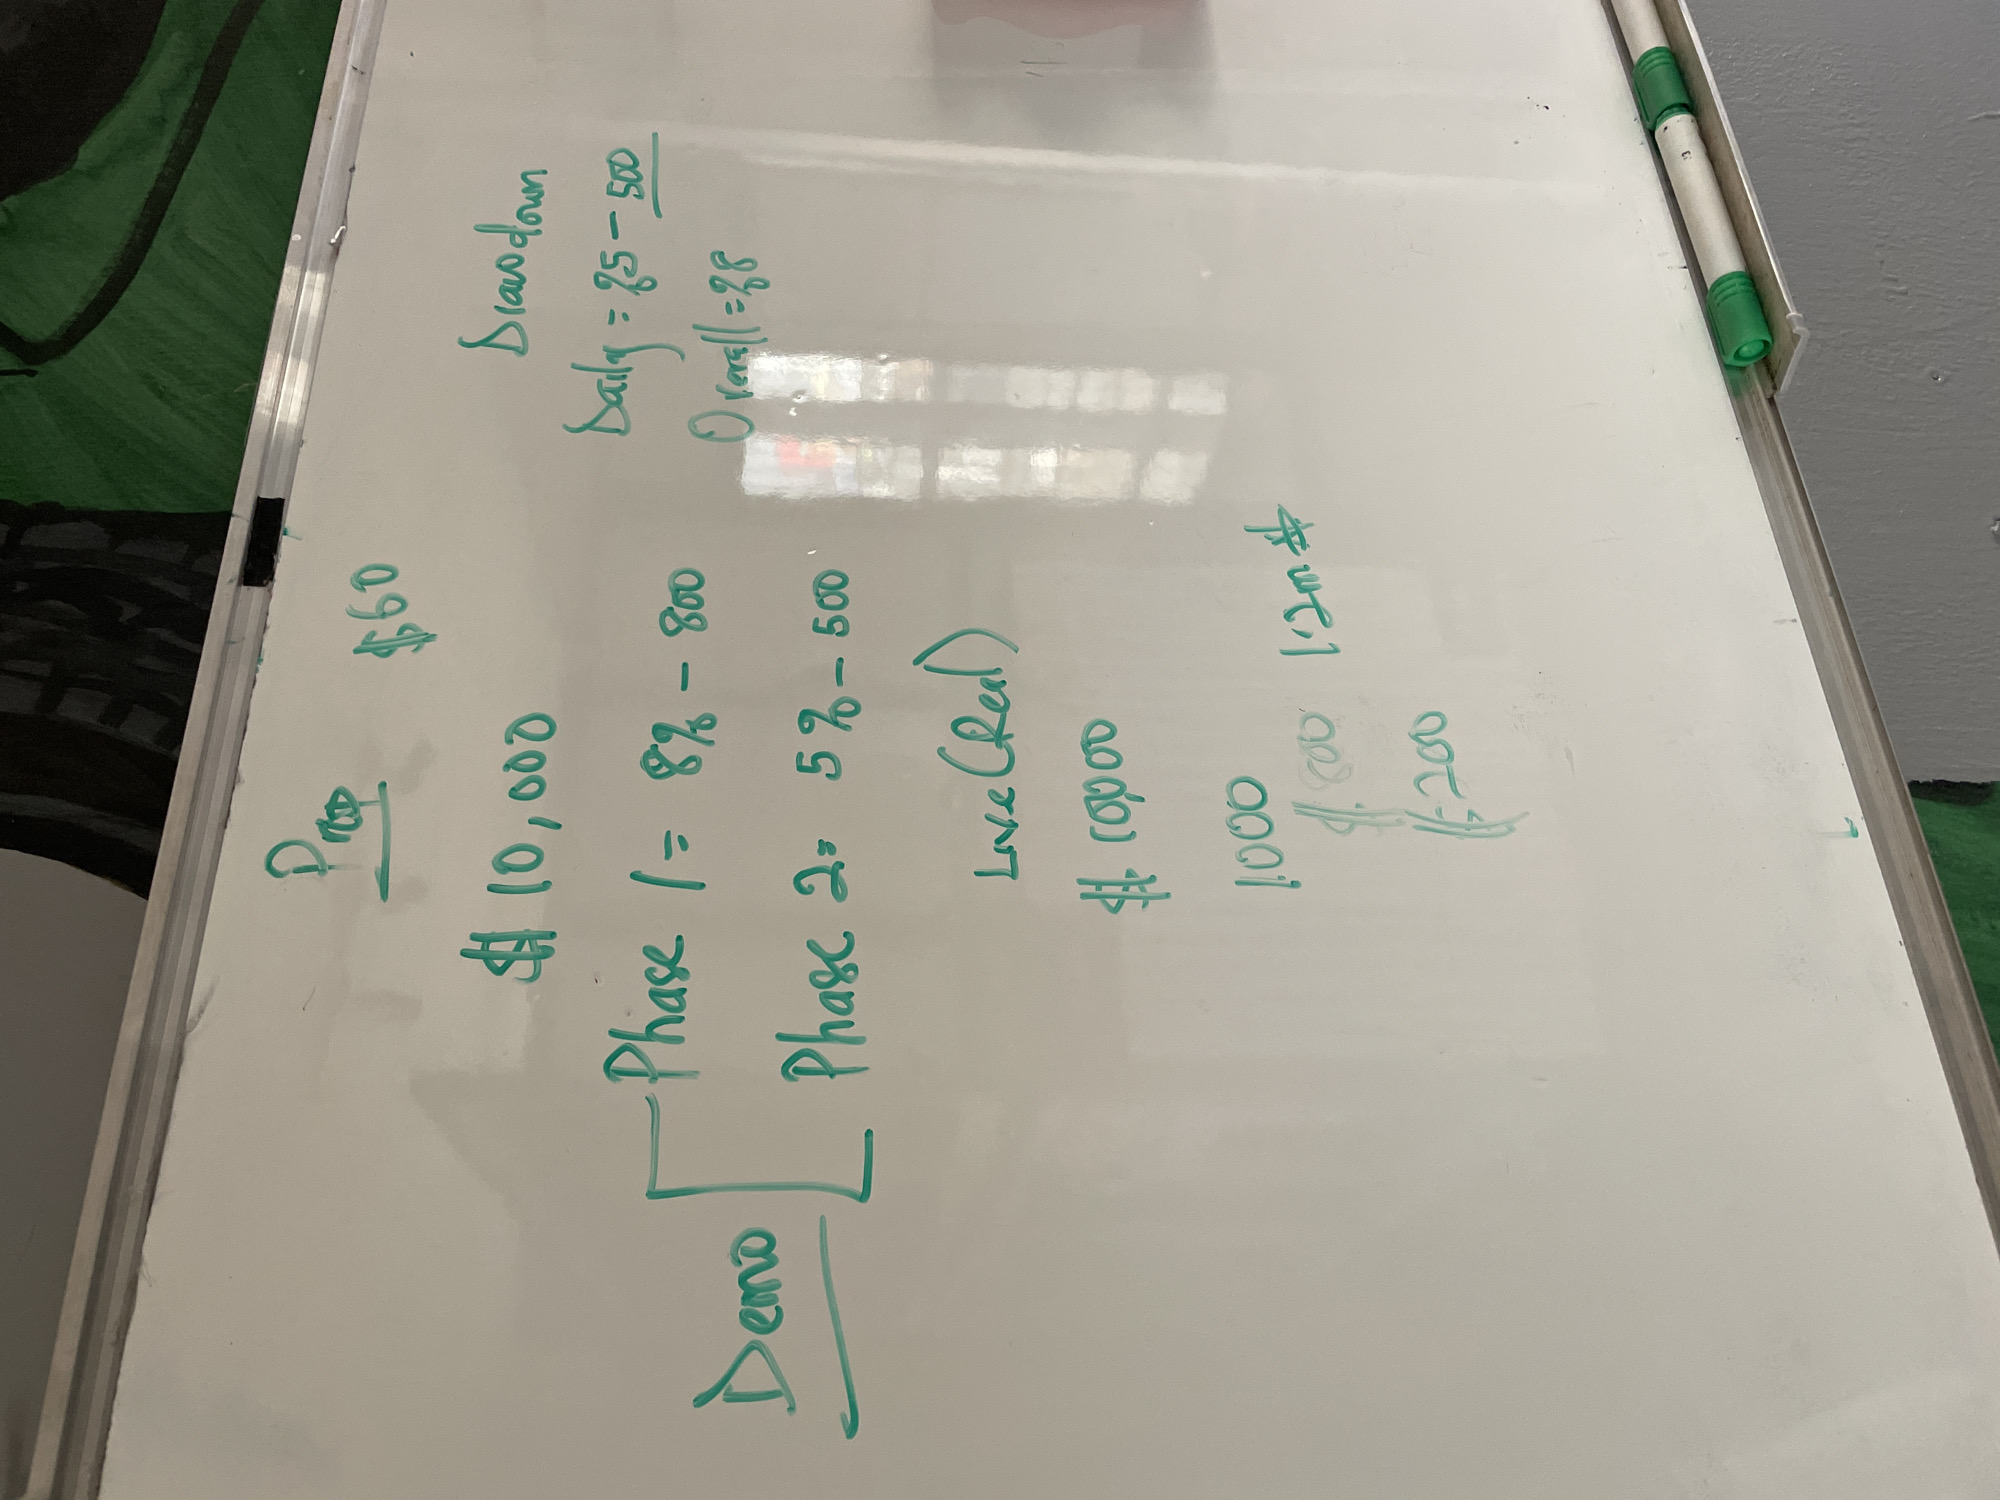 $60
$10,000
Drawdown
Phase 1 = 8% - 800
Daily = %5 - 500
Demo
Phase 2= 5% - 500
Overall = %8
Live (Real)
$ 10,000
1000
1.2m $
$ 800
$ 200